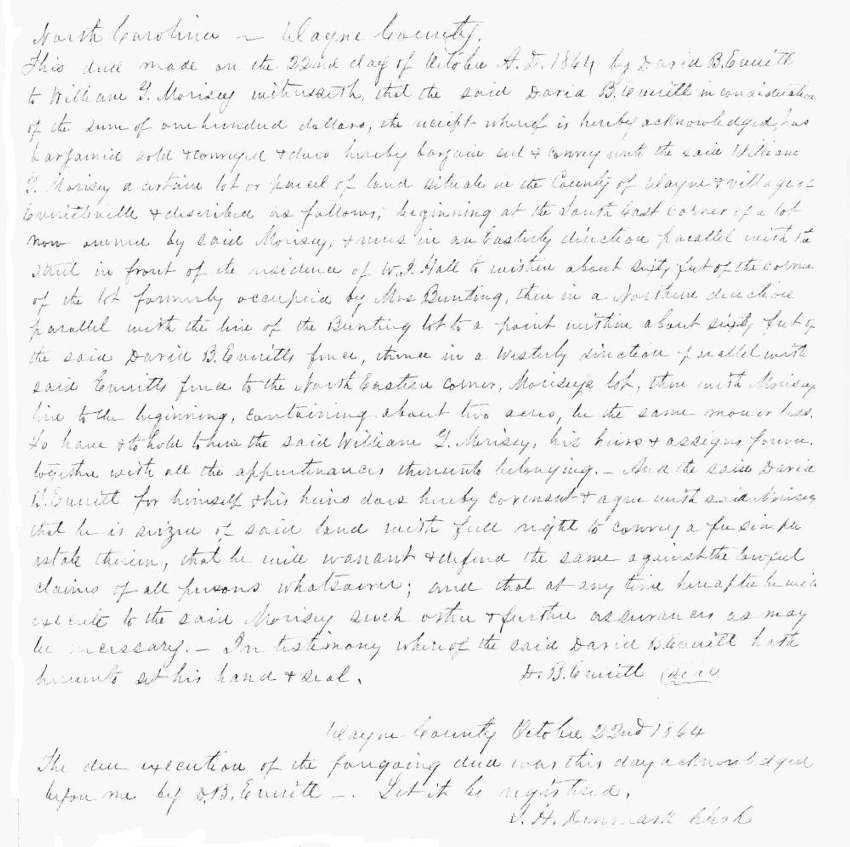 North Carolina - Wayne County.
This deed made on the 22nd day of October A.D. 1864 by David B. Everitt
to William G. Morisey witnesseth, that the said David B. Everitt in consideration
of the sum of one hundred dollars, the receipt whereof is hereby acknowledged, has
bargained sold & conveyed & does hereby bargain sell & convey unto the said William
G. Morisey a certain lot or parcel of land situate in the County of Wayne & village of
Everittsville & described as follows; beginning at the South East Corner of a lot
now owned by said Morisey, & runs in an Easterly direction parallel with the
street in front of the residence of W. J. Hall to within about sixty feet of the corner
of the lot formerly occupied by Mrs Bunting, then in a Northern direction
parallel with the line of the Bunting lot to a point within about sixty feet of
the said David B. Everitts fence, thence in a Westerly direction parallel with
said Everitts fence to the North Eastern corner, Moriseys lot, then with Morisey
line to the beginning, containing about two acres, be the same more or less.
To have & to hold to him the said William G. Morisey, his heirs & assigns forever,
together with all the appurtenances thereunto belonging. - And the said David
B. Everitt for himself & his heirs does hereby covenant & agree with said Morisey
that he is seized of said land with full right to convey a fee simple
estate therein, that he will warrant & defend the same against the lawful
claims of all persons whatsoever; and that at any time hereafter he will
execute to the said Morisey such other & further assurances as may
be necessary. - In testimony whereof the said David B. Everitt hath
hereunto set his hand & seal. D. B. Everitt (seal)
Wayne County October 22nd 1864
The due execution of the foregoing deed was this day acknowledged
before me by D. B. Everitt -. Let it be registered.
Denmark Clerk